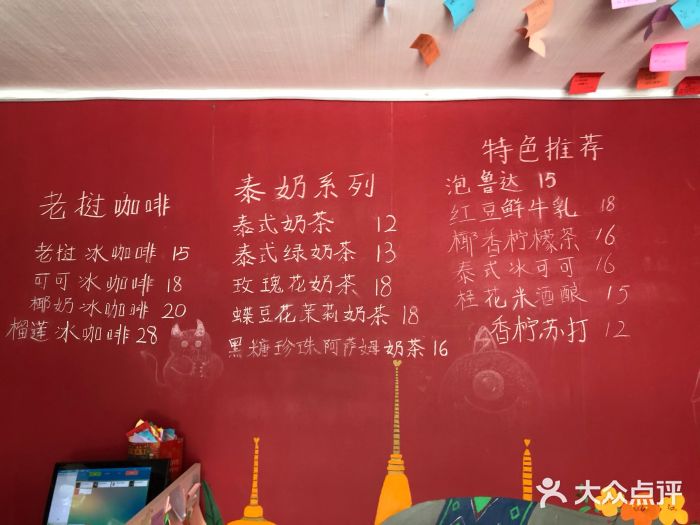 老挝咖啡
老挝冰咖啡 15
可可冰咖啡 18
椰奶冰咖啡 20
榴莲冰咖啡 28
泰奶系列
泰式奶茶 12
泰式绿奶茶 13
玫瑰花奶茶 18
蝶豆花茉莉奶茶 18
黑糖珍珠阿萨姆奶茶 16
特色推荐
泡鲁达 15
红豆鲜牛乳 18
椰香柠檬茶 16
泰式冰可可 16
桂花米酒酿 15
香柠苏打 12
大众点评